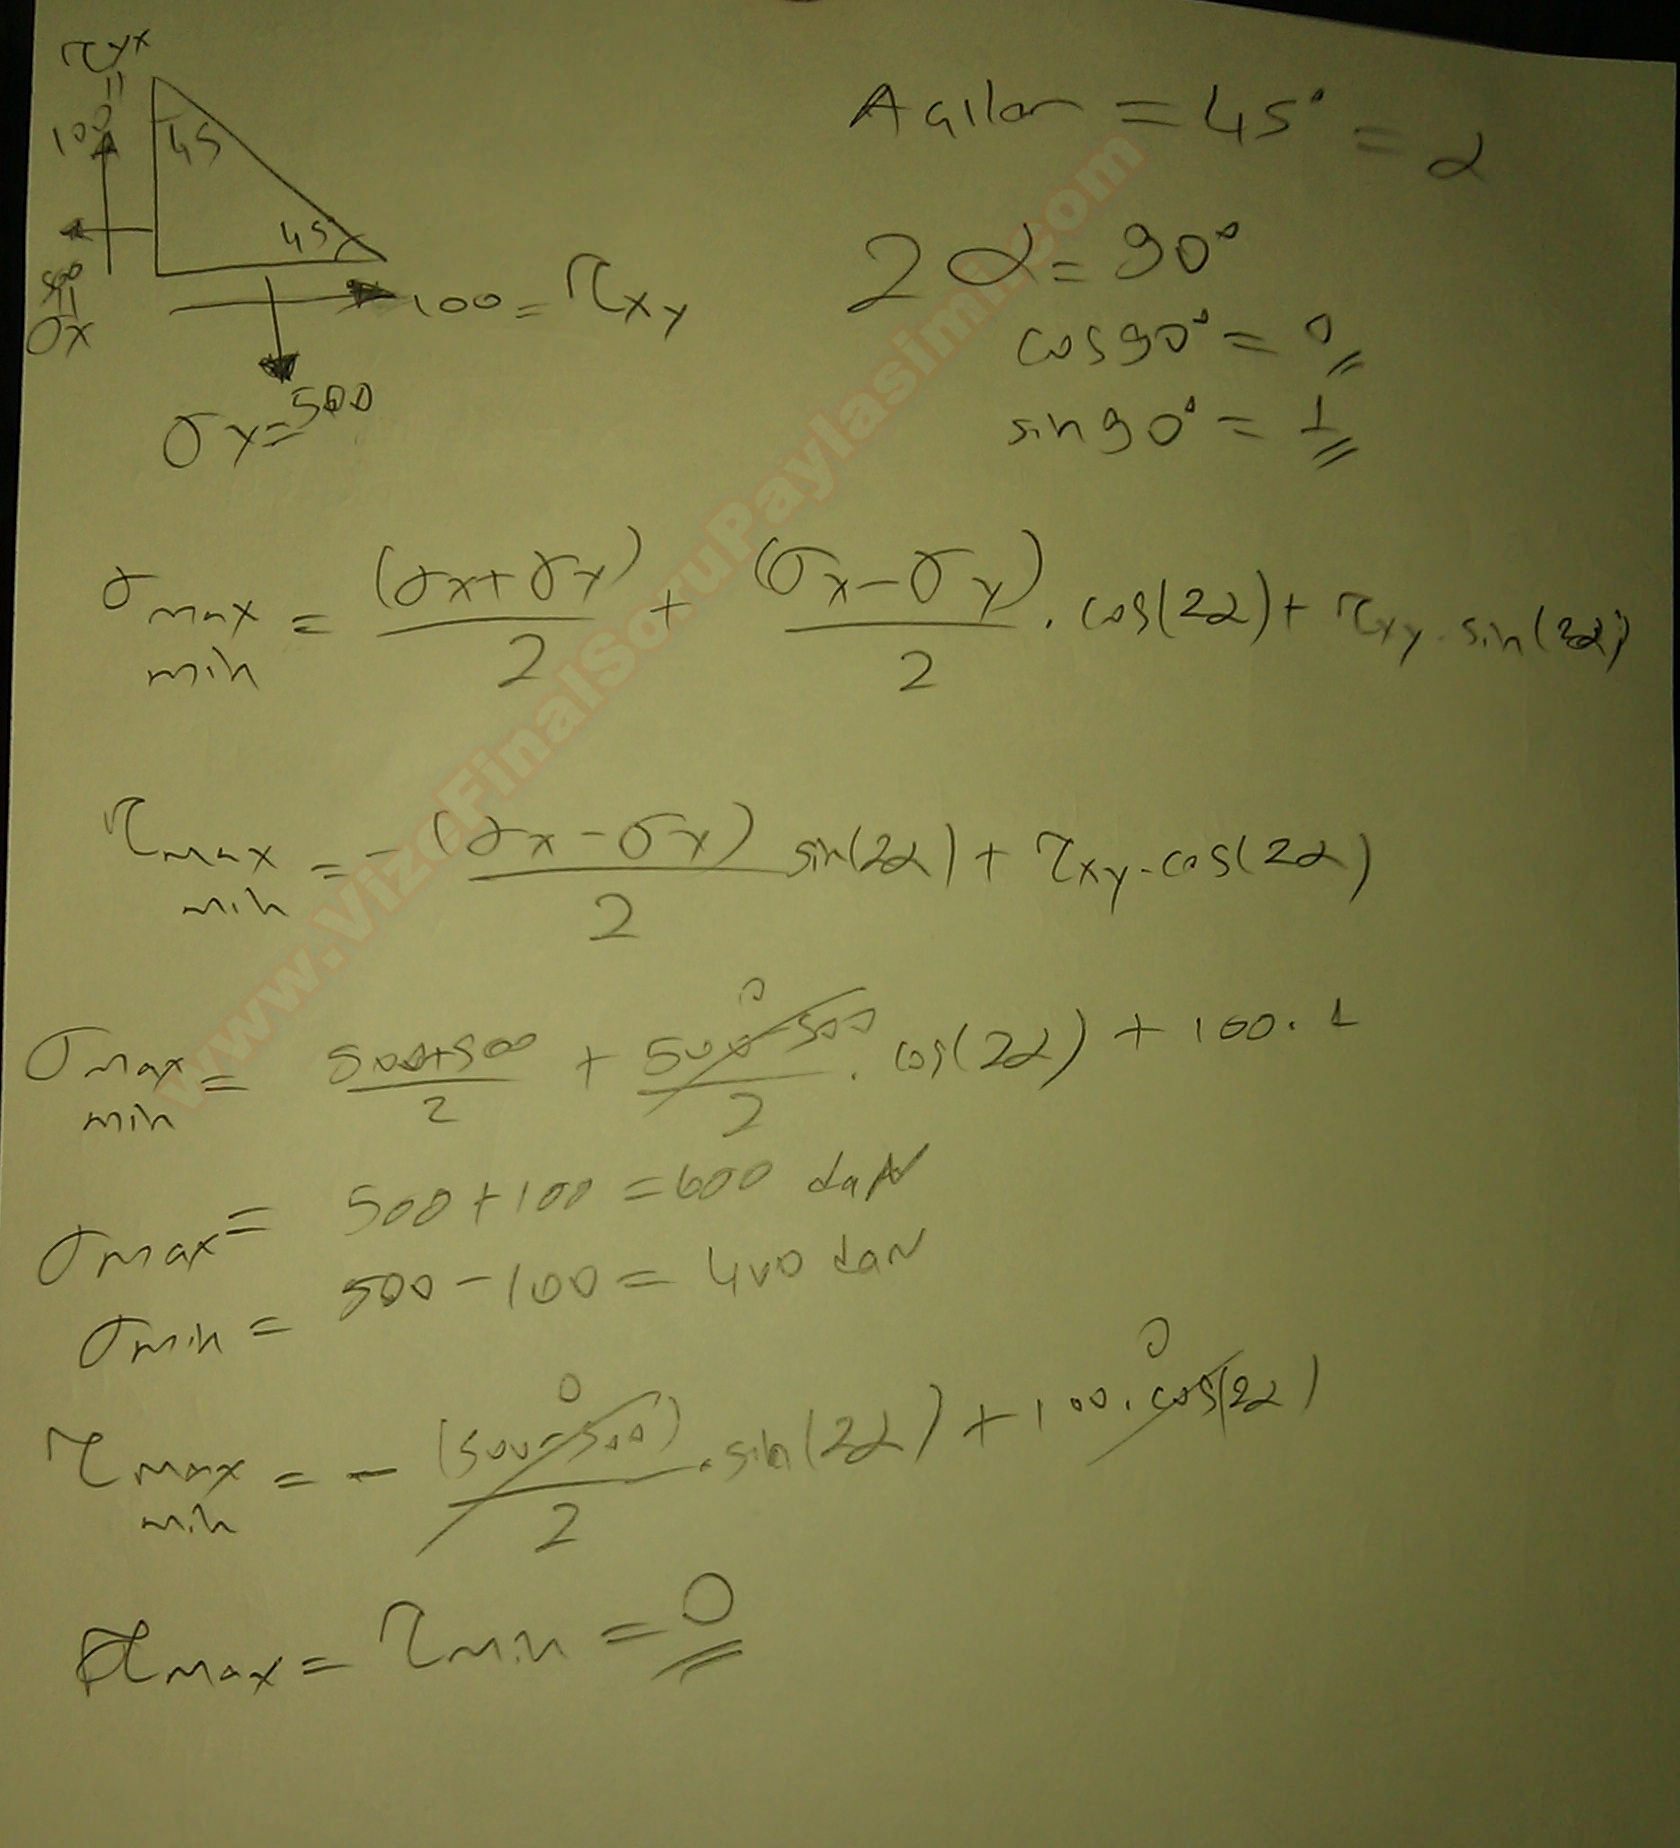 τyx
=
100
45
45
500
=
σx
100 = τxy
σy = 500
Açılar = 45° = α
2α = 90°
cos90° = 0
sin90° = 1
σmax min = (σx+σy)/2 + (σx-σy)/2 . cos(2α) + τxy . sin(2α)
τmax min = - (σx-σy)/2 sin(2α) + τxy . cos(2α)
σmax min = 500+500/2 + 500-500/2 . cos(2α) + 100 . 1
0
σmax = 500+100 = 600 daN
σmin = 500-100 = 400 daN
τmax min = - (500-500)/2 . sin(2α) + 100 . cos(2α)
0
0
τmax = τmin = 0
www.VizeFinalSoruPaylasimi.com